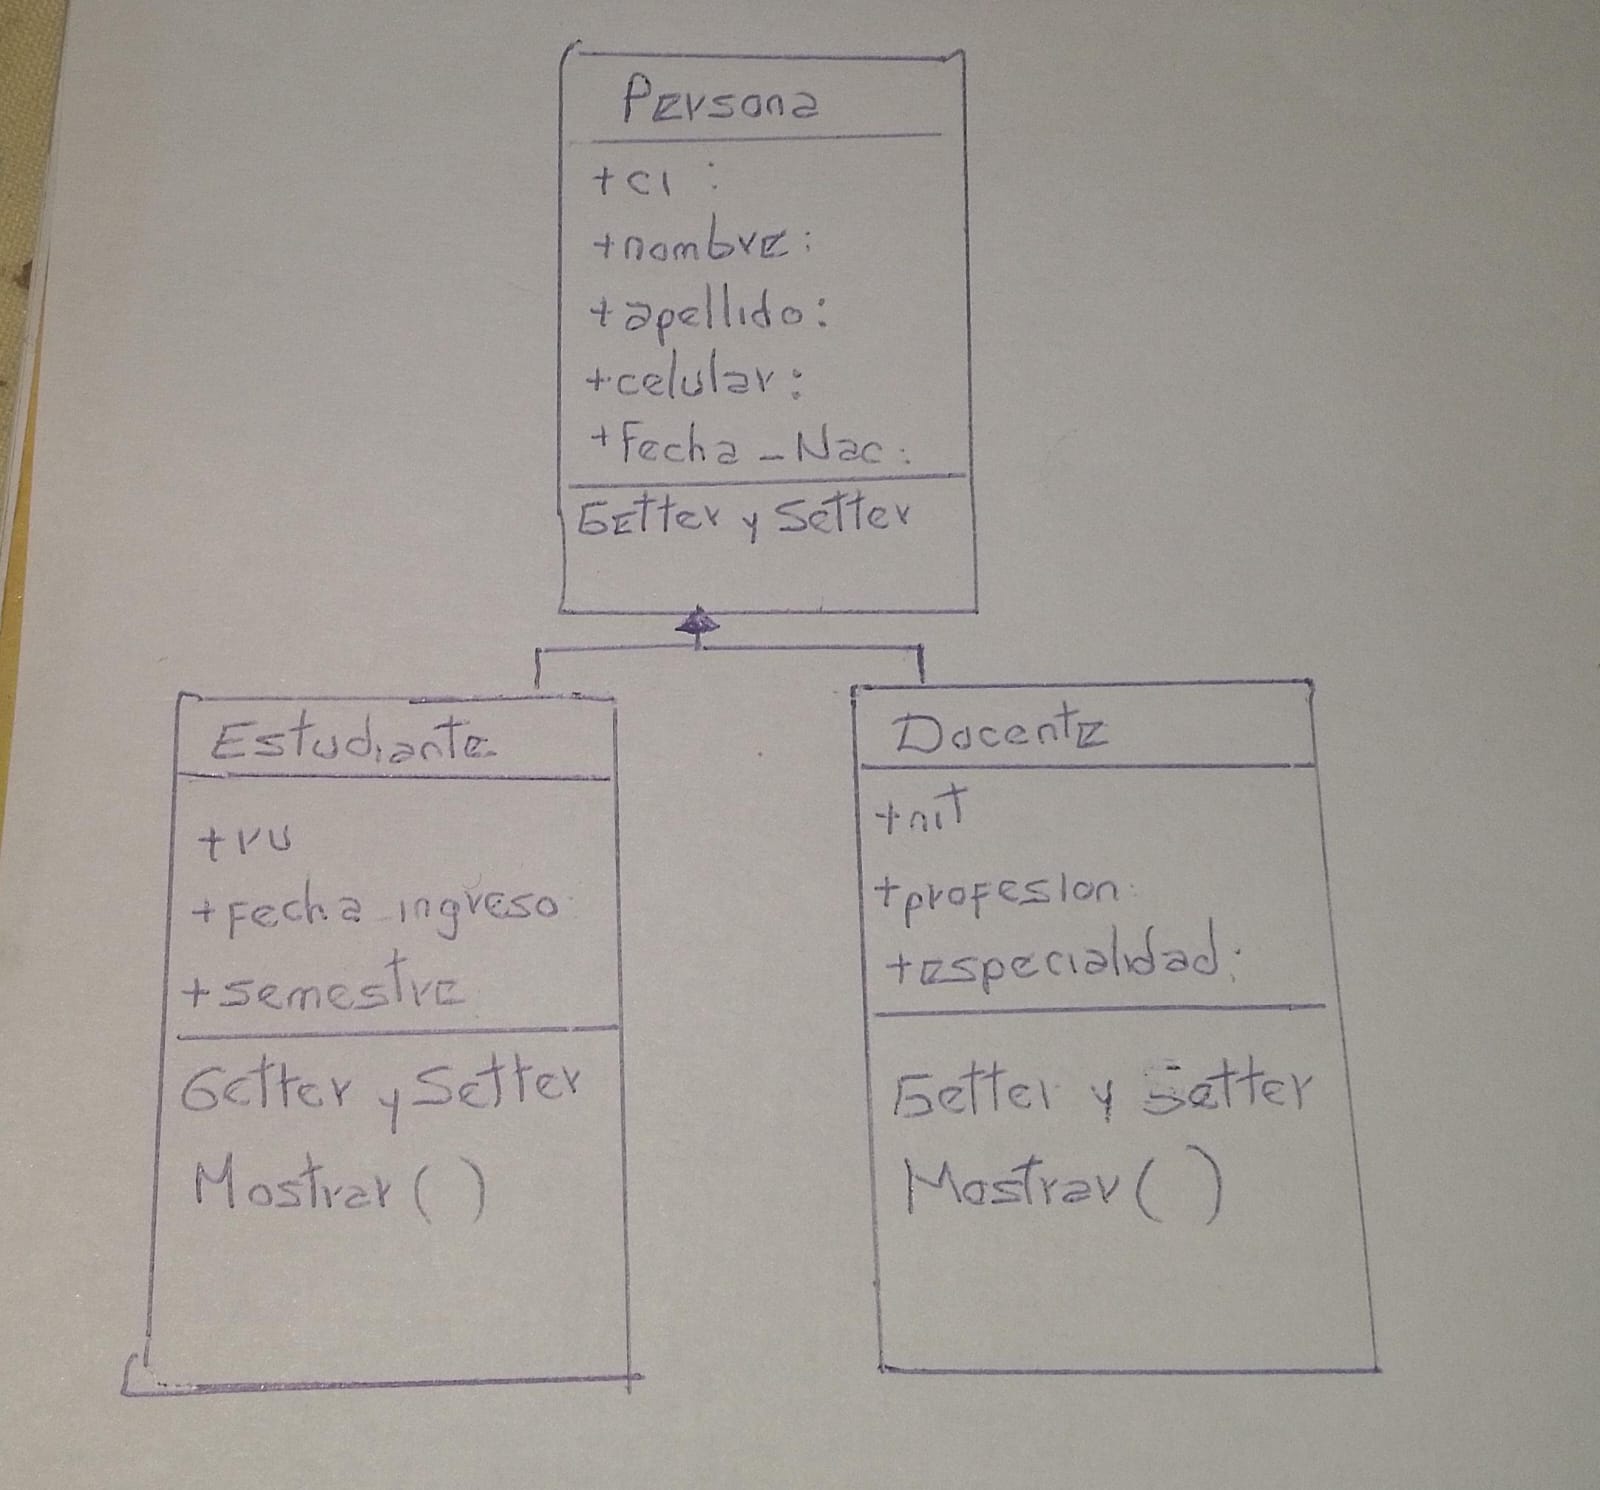 Persona
+ci :
+nombre:
+apellido:
+celular:
+Fecha_Nac:
Getter y Setter
Estudiante
+ru
+Fecha_ingreso
+semestre
Getter y Setter
Mostrar ( )
Docente
+nit
+profesion:
+especialidad:
Getter y Setter
Mostrar ( )